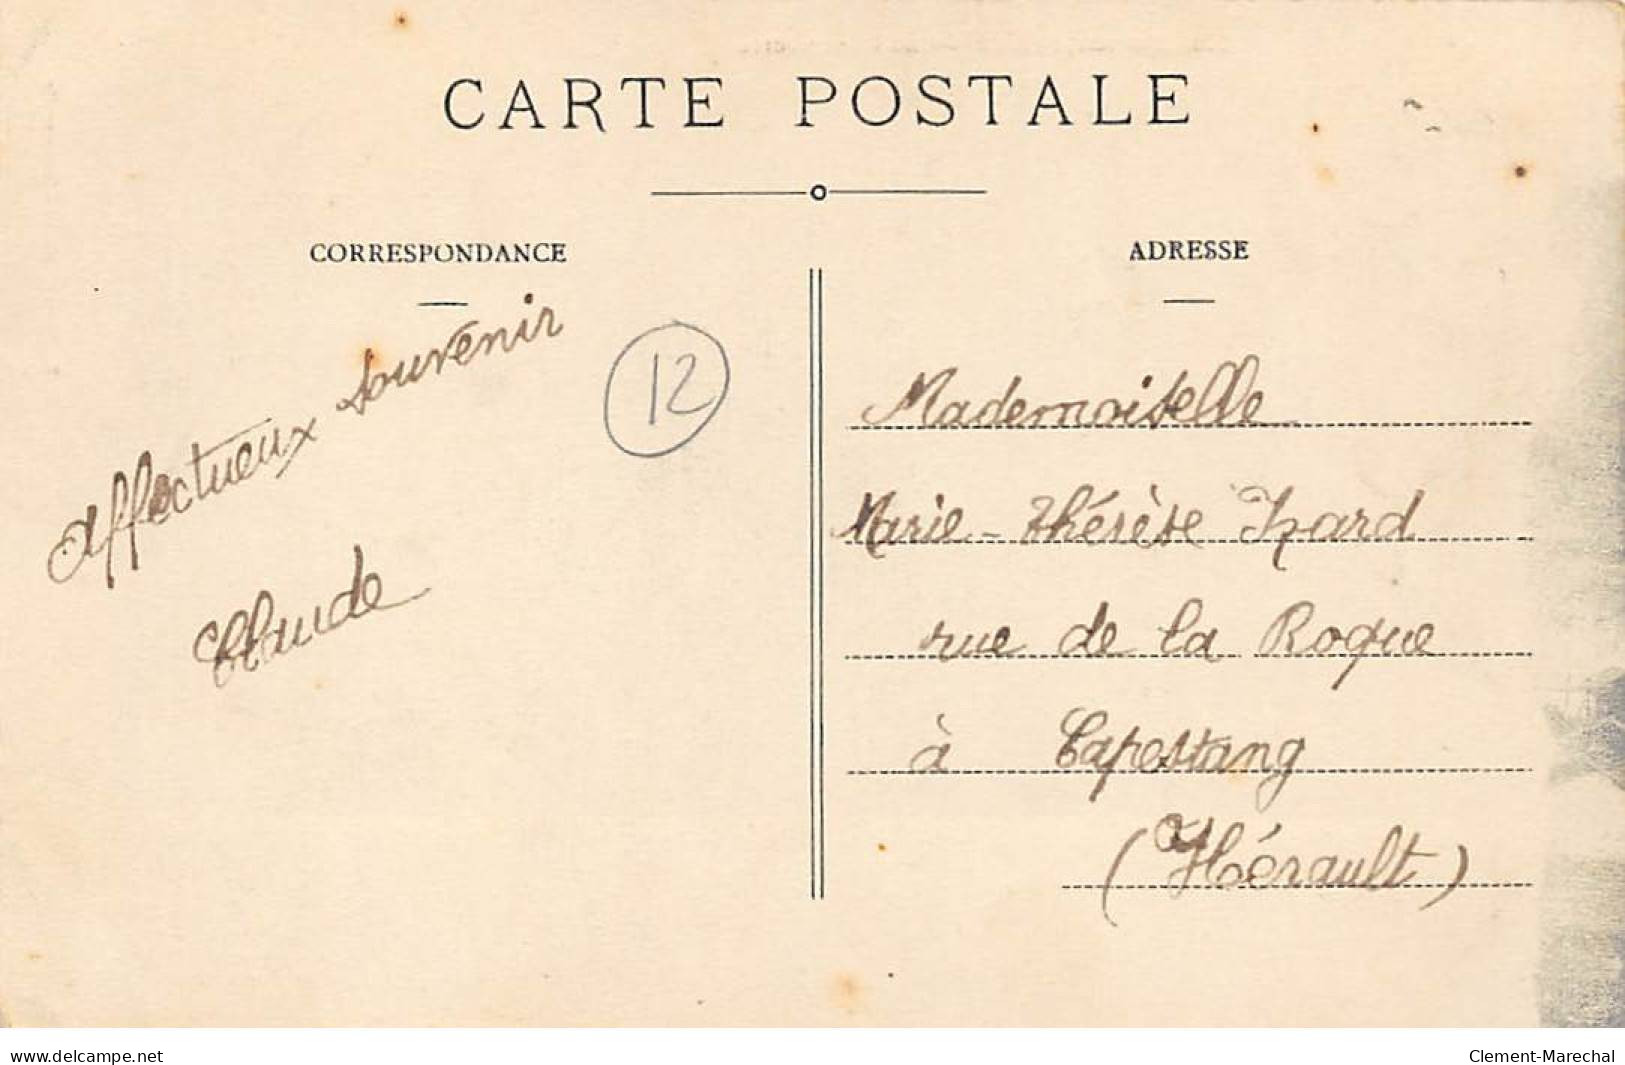 CARTE POSTALE
CORRESPONDANCE
ADRESSE
Affectueux souvenir
Claude
12
Mademoiselle
Marie-Thérèse Izard
rue de la Roque
à Capestang
(Hérault)
www.delcampe.net
Clement-Marechal